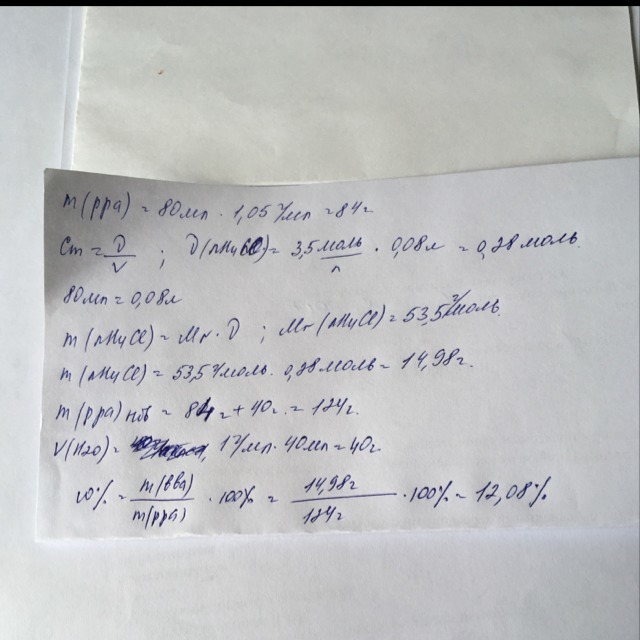 m(рра) = 80мл · 1,05 г/мл = 84г
Cm = D/V ; D(NH4Cl) = 3,5 моль/л · 0,08л = 0,28 моль.
80мл = 0,08л
m(NH4Cl) = Mr · D ; Mr(NH4Cl) = 53,5 г/моль.
m(NH4Cl) = 53,5 г/моль · 0,28 моль = 14,98г.
m(рра) нов = 84г + 40г. = 124г.
V(H2O) = 1 г/мл · 40мл = 40г.
ω% = m(вва)/m(рра) · 100% = 14,98г/124г · 100% = 12,08%